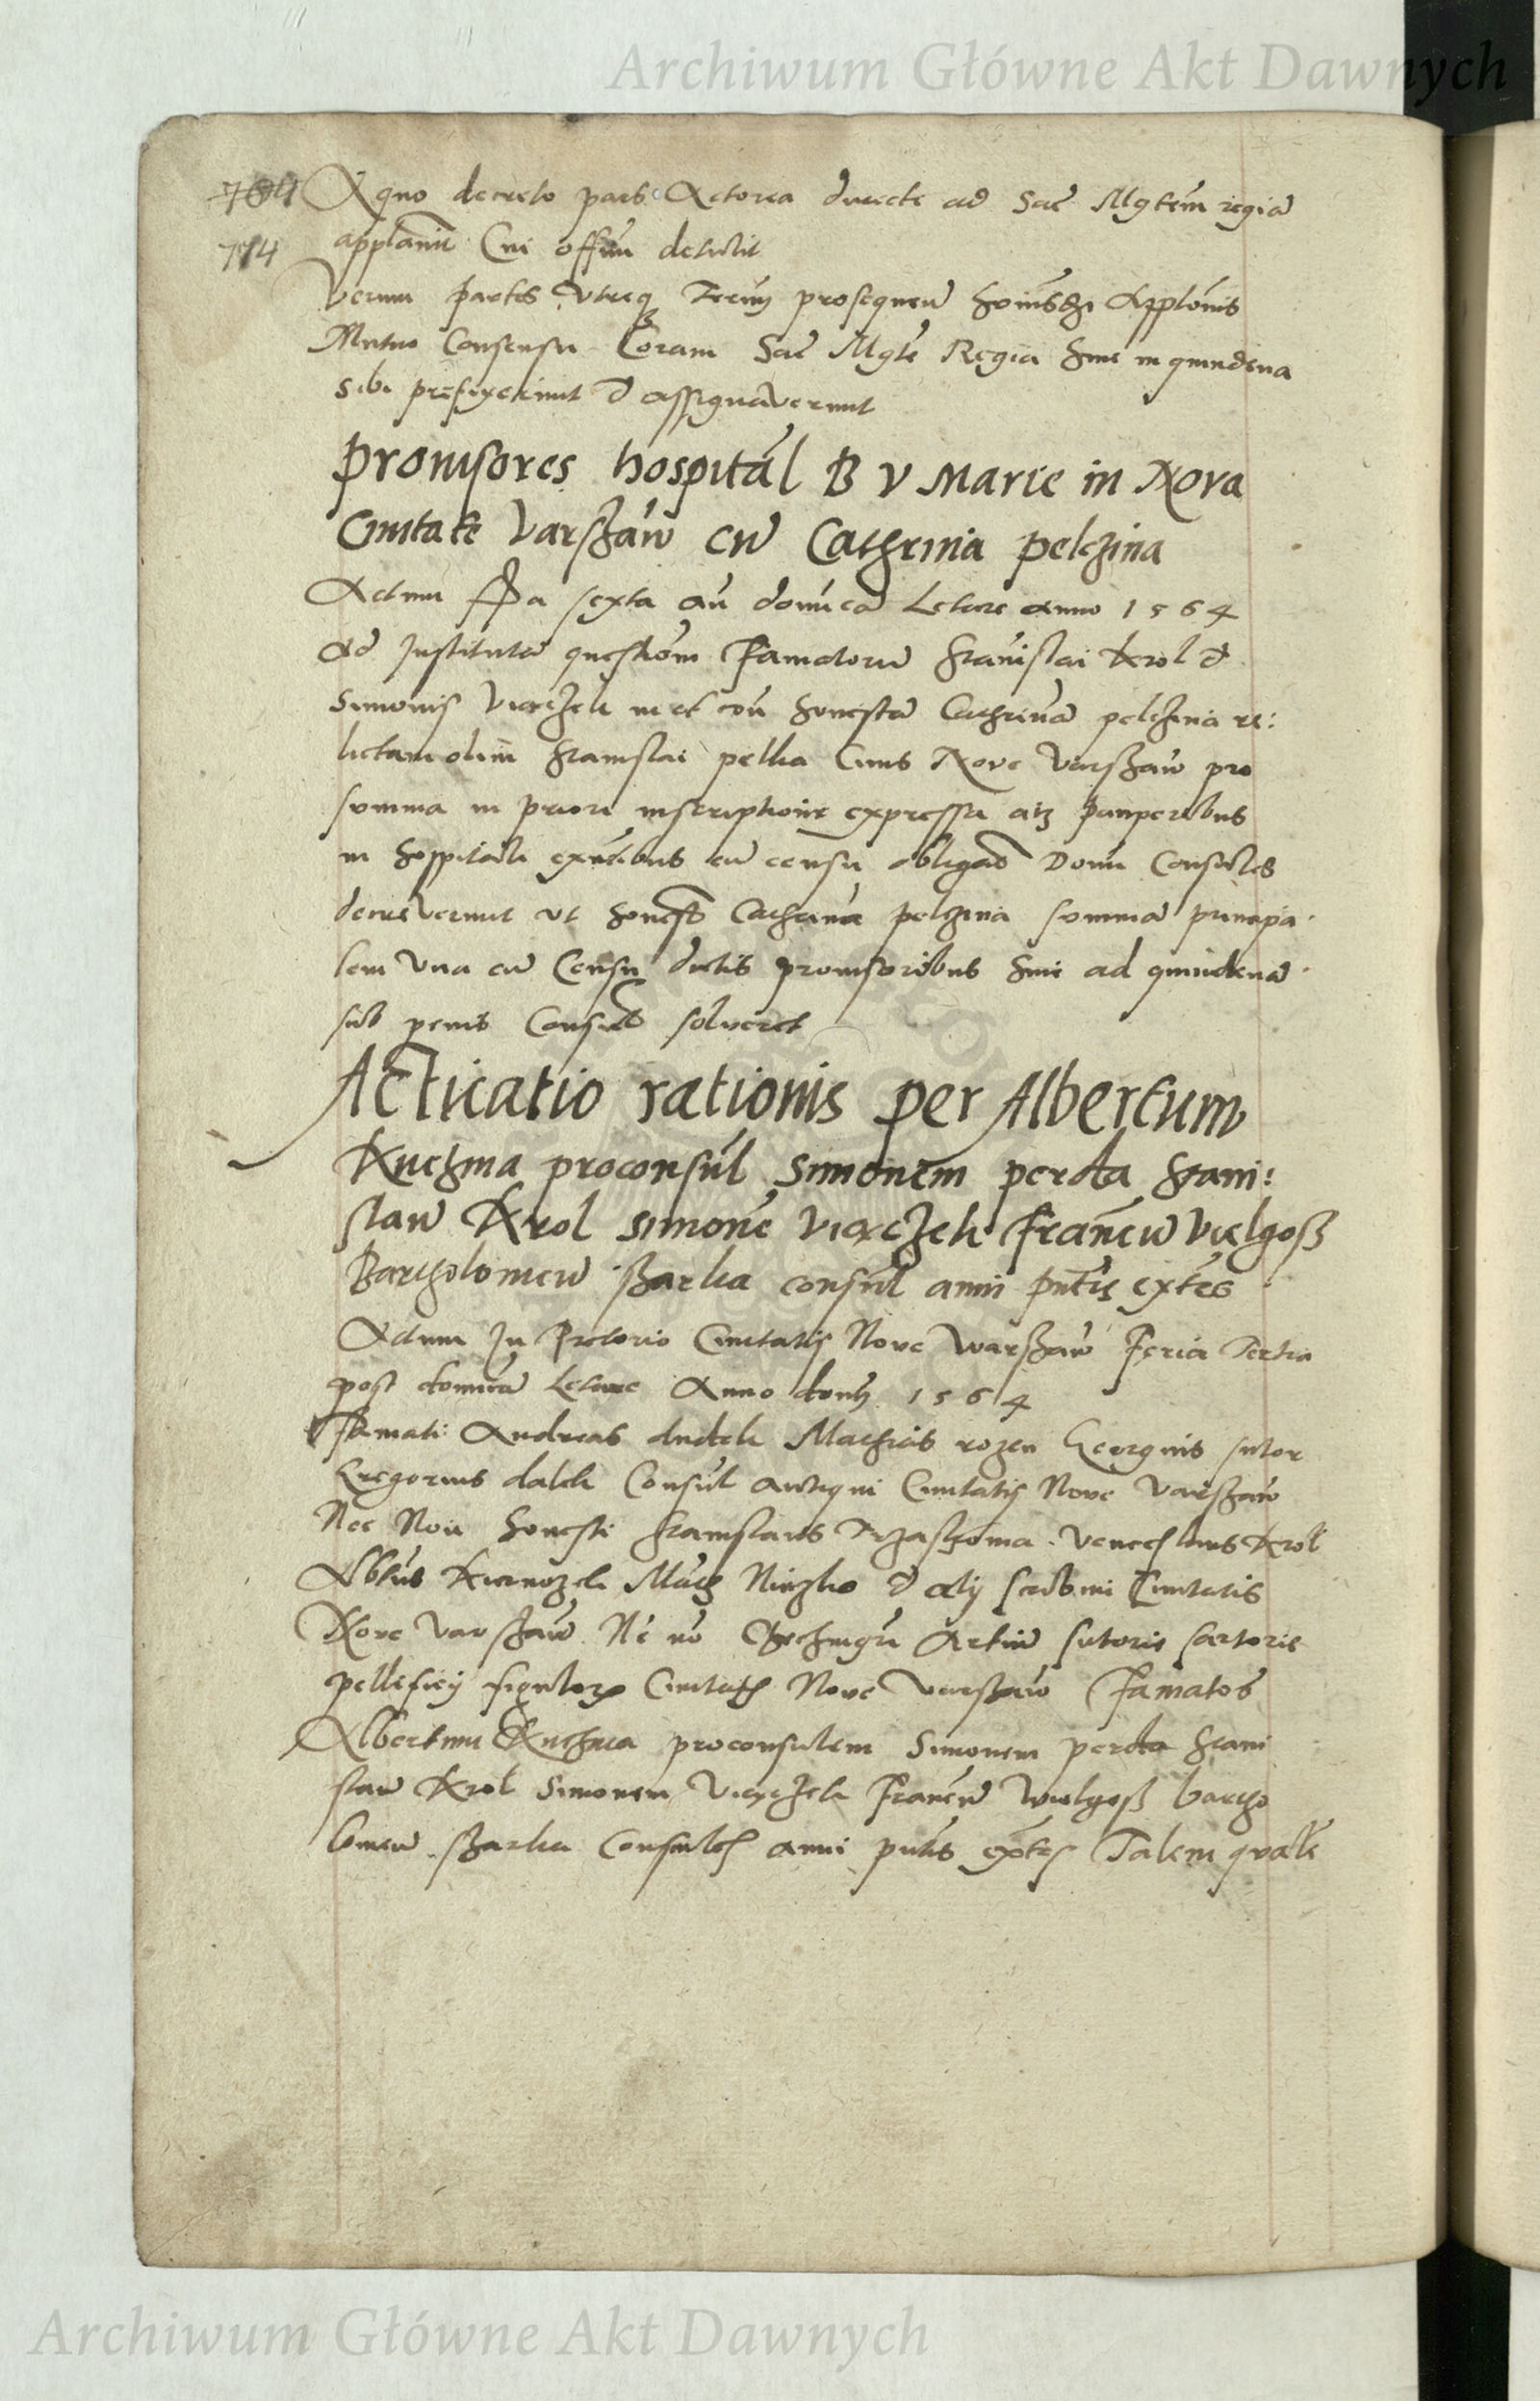 Archiwum Główne Akt Dawnych
704 A quo decreto pars Actorea directe ad Sac Mgtem regia
714 applavit Cui offm detulit
Verum partes Utreq Term prosequen hoimsdi Applonis
Mutuo Consensu Coram Sac Mgte Regia hinc in quindena
sibi prefixerunt & assignaverunt
Provisores hospital B V Marie in Nova
Civitate Varschaw cu Cathrina pelczina
Actum fria sexta an domica Letare anno 1564
Ad Instituta questiom Famatoru Stanislai Krol &
Simonis con honesta Cathrina pelczina re:
lictam olim Stanislai pelka Civis Nove Varschaw pro
somma in priori inscriptione expressa atq pauperibus
in hospitali exntibus cu censu obligas Domi Consules
decreverunt ut honesta Cathrina pelczina somma principa
lem Una cu Censu dictis provisoribus hinc ad quindena
sub penis Consul solveret
Acticatio rationis per Albertum
Kuchma proconsul Simonem perda Stani:
slaw Krol simone Francu Vielgosz
Bartholomeu szarka consul anni pntis extes
Actum In Pretorio Civitatis Nove Warschaw Feria Tertia
post domica Letare Anno domi 1564
Famati Andreas dudek Mathias rozen Georgius sutor
Gregorius dalek Consul antiqui Civitatis Nove Varschaw
Nec Non honesti Stanislaus Venceslaus Krol
Albtus Math & alij scabini Civitatis
Nove Varschaw Artiu sutoris sartoris
pellificij figulor Civitatis Nove Varschaw Famatos
Albertum Kuchma proconsulem Simonem perda Stani
slaw Krol Simonem Francu Wielgosz bartho
lomeu szarka Consules anni pntis extes Talem quale
Archiwum Główne Akt Dawnych